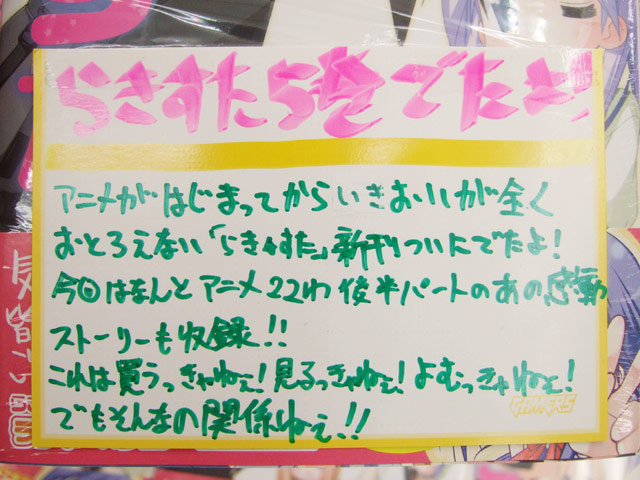 らきすた5巻でたよ!
アニメがはじまってからいきおいが全く
おとろえない「らき☆すた」新刊ついにでたよ!
今回はなんとアニメ22わ後半パートのあの感動
ストーリーも収録!!
これは買うっきゃねぇ!見るっきゃねぇ!よむっきゃねぇ!
でもそんなの関係ねぇ!!
GAMERS